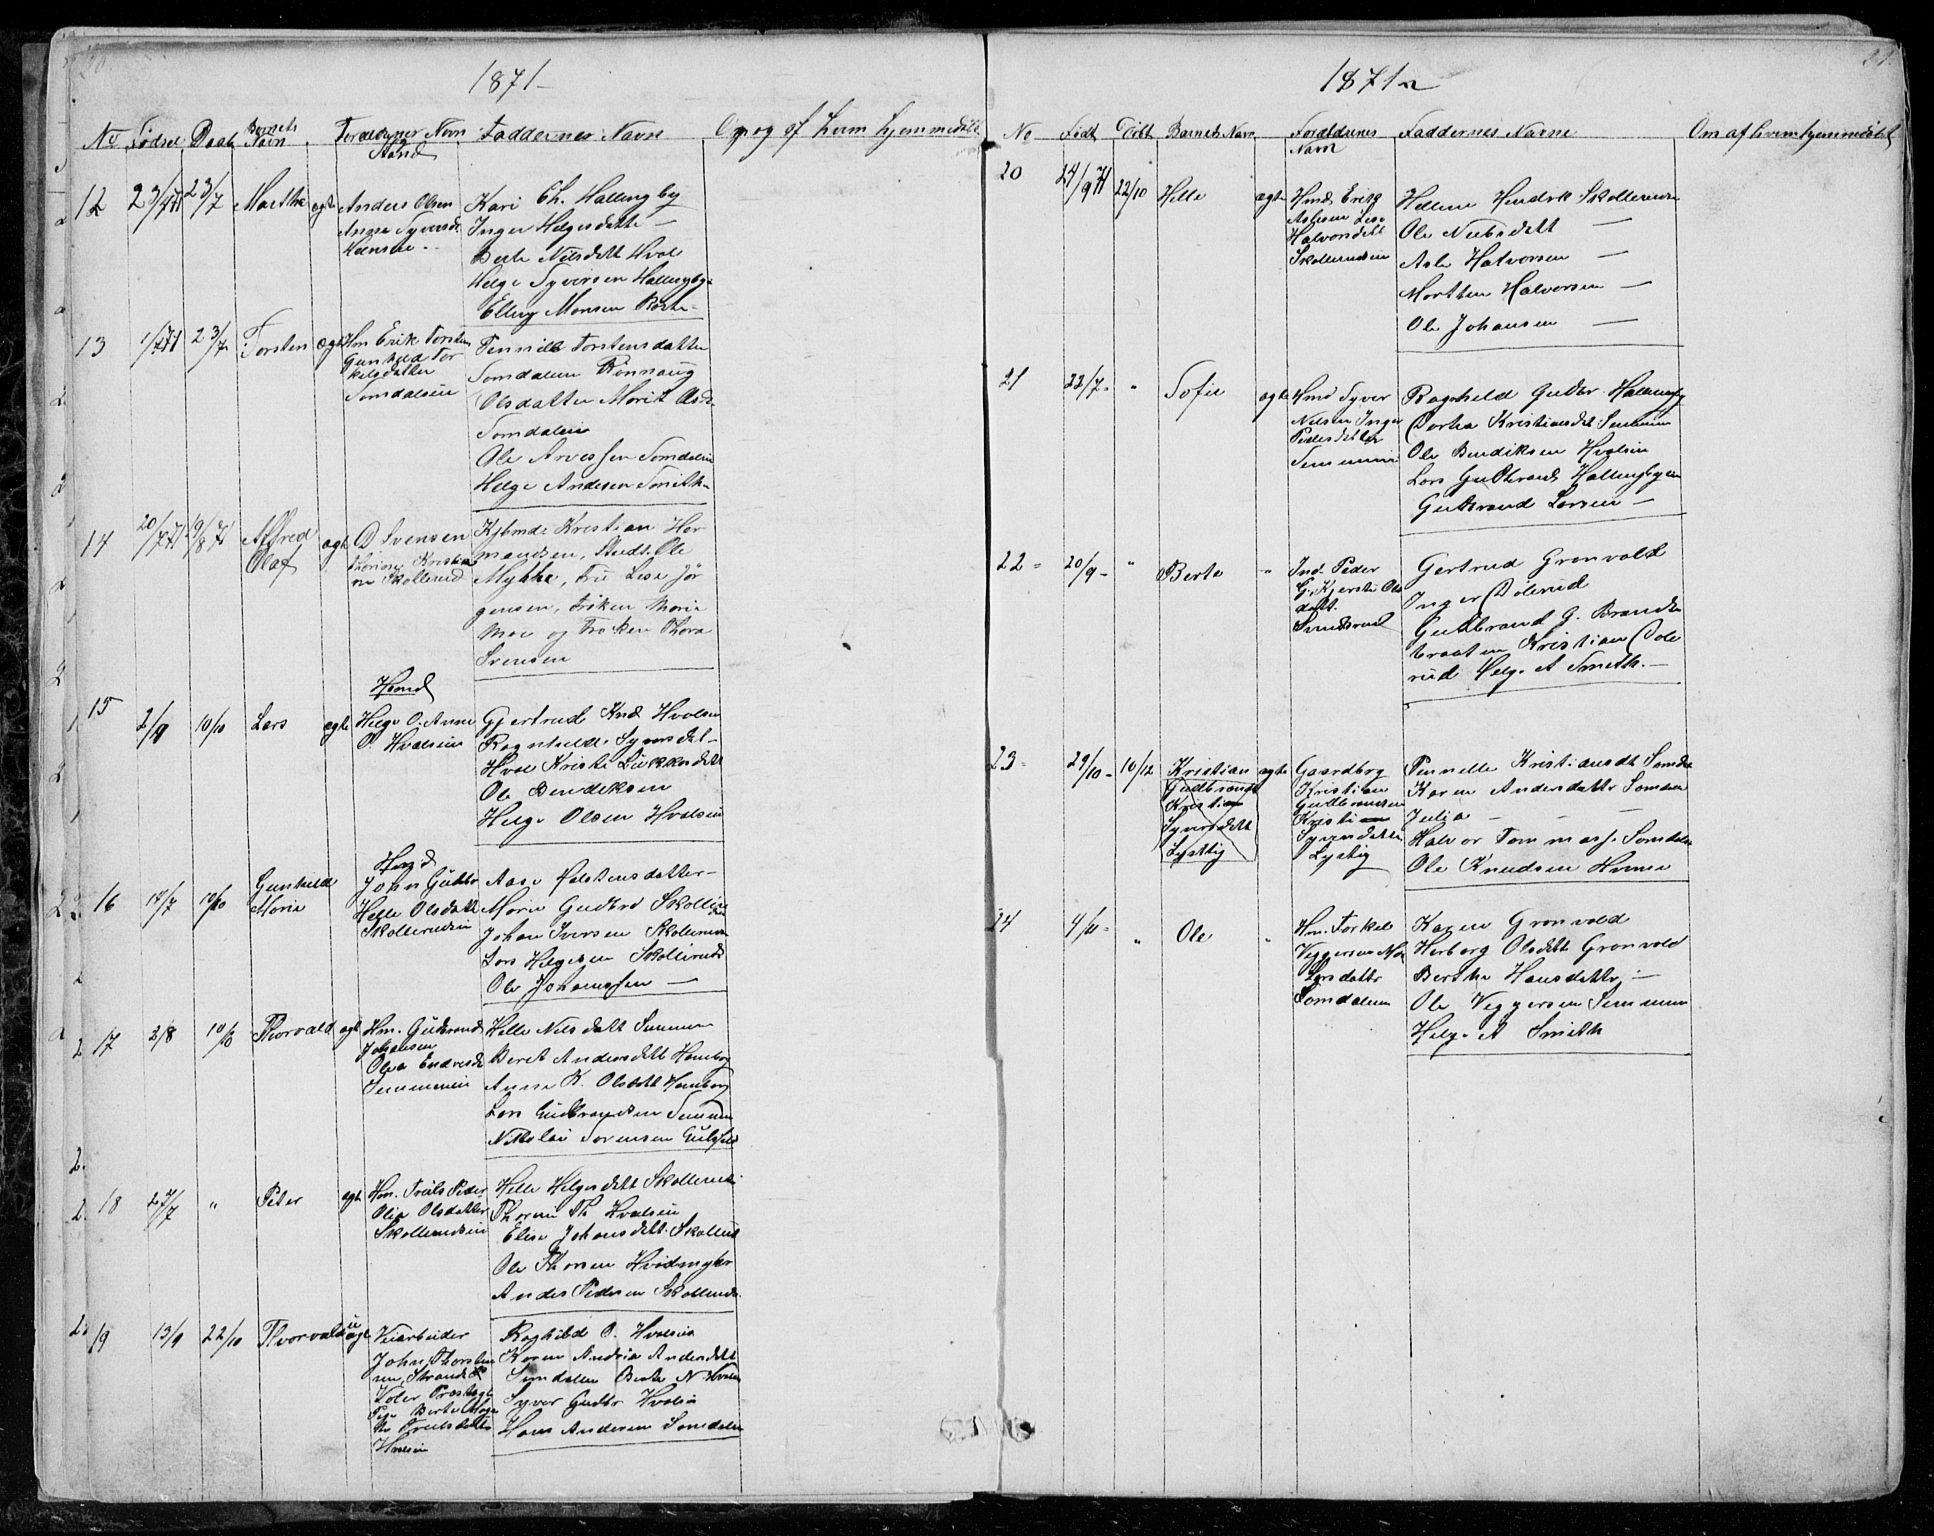 20
1871
No Fødsel Daab Barnets Navn Forældrenes Navn Stand Faddernes Navne Om og af hvem hjemmedøbt
12 23/4 71 23/7 Martha ægte
Anders Olsen
Anne Syversd
Kari Ch. Hallingby
Inger Helgesdatte —
Berte Nilsdatt Hval
Helge Syversen Hallingby
Elling Monsen
13 1/7 71 23/7 Torsten ægte
Hm Erik Torsten
Gunhild Tor
kelsdatter
Somdalseie
Pernille Torstensdatter
Somdalen Rönnaug
Olsdatter Marit Olsd.
Somdalen
Ole Arvessen Somdalen
Helge Andersen Smith
14 20/7 71 19/8 71 Alfred
Olaf ægte
D Svensen
Thorine Kristia
ne Skollerud
Kjbmd. Kristian Her
mandsen, Studt. Ole
Mykke, Fru Lese Jør
gensen, Frøken Marie
Moe og Frøken Thora
Svensen
15 2/9 10/10 Lars ægte
Hsmd
Helge O. Anne
O. Hvalseie
Gjertrud Knd Hvalsen
Ragnhild Syversdat—
Hval Kristi
Ole Bendiksen
Helge Olsen Hvalseie
16 14/7 10/10 Gunhild
Marie
Hsmd
John Gudbr
Helle Olsdatte
Skollerudeie
Aase Østensdatter
Marie Gudbrd Skolleru
Johan Iversen Skollerud
Lars Helgesen Skollerud
Ole Johanessen —
17 2/8 10/10 Thorvald ægte
Hm. Gudbrand
Johansen
Olea Endresd
Semmeneie
Helle Nilsdatt Semmen
Beret Andersdatt Homborg
Anne K. Olsdatt Homborg
Lars Gudbrandsen Semmen
Nikolai Sorensen
18 27/7 " Peter ægte
Hm. Truls Peder
Olia Olsdatter
Skollerudeie
Helle Helgesdatt Skollerud
Thorine Th Hvalseie
Elise Johansdatt Skollerud
Ole Thorsen Hvidmyhr
Anders Pedersen Skollerud.
19 13/9 22/10 Thorvald uægte
Veiarbeider
John Thorsten
sen, Strande
Berte
Trulsdatter
Hvalseie
Raghild O. Hvalseie
Karen Andrea Andersdatt
Somdalen Berte N. Hvalen
Syver Gudbr Hvalseie
Hans Andersen Somdalen
21
1871
No Født Døbt Barnets Navn Forældrenes Navn Faddernes Navne Om af hvem hjemmedøbt
20 24/9 71 22/10 Helle ægte
Hmd Erik
Aslesen Lese
Halvorsdatt
Skollerudeie
Hellene Hendrik Skollerudeie
Ole Nubsdatt —
Asle Halvorsen —
Morthen Halvorsen —
Ole Johansen —
21 22/7 " Sofie ægte
Hmd Syver
Nilsen Inger
Pedersdatter
Semmeneie
Ragnhild Gudbr Hallingby
Dorthea Kristiansdat Semmen
Ole Bendiksen Hvalseie
Lars Gudbrands Hallingbyeie
Gudbrand Larsen —
22 20/9 " Berte "
Ind. Peder
G. Kjersti Ols
datt.
Svendsrud
Gertrud Grønvold
Inger Dølerud
Gudbrand G. Brandts
braaten Kristian Døle
rud Helge A Smeth. —
23 29/10 10/12 Kristian ægte
Gudbrands
Kristian
Syversdatt
Lysttig
Gaardbrg
Kristian
Gudbrandsen
Kristiane
Syversdatter
Lystig
Pernelle Kristiansdt Somdal
Karen Andersdatter Somdal
Julia — — —
Halvor Tommass. Somdalen
Ole Knudsen
24 4/11 " Ole "
Hm. Torkel
Veggersen
Larsdatter
Somdalen
Karen Gronvold
Herborg Olsdatt Gronvold
Berthe Hansdatter —
Ole Veggersen Semmen
Helge A Smith